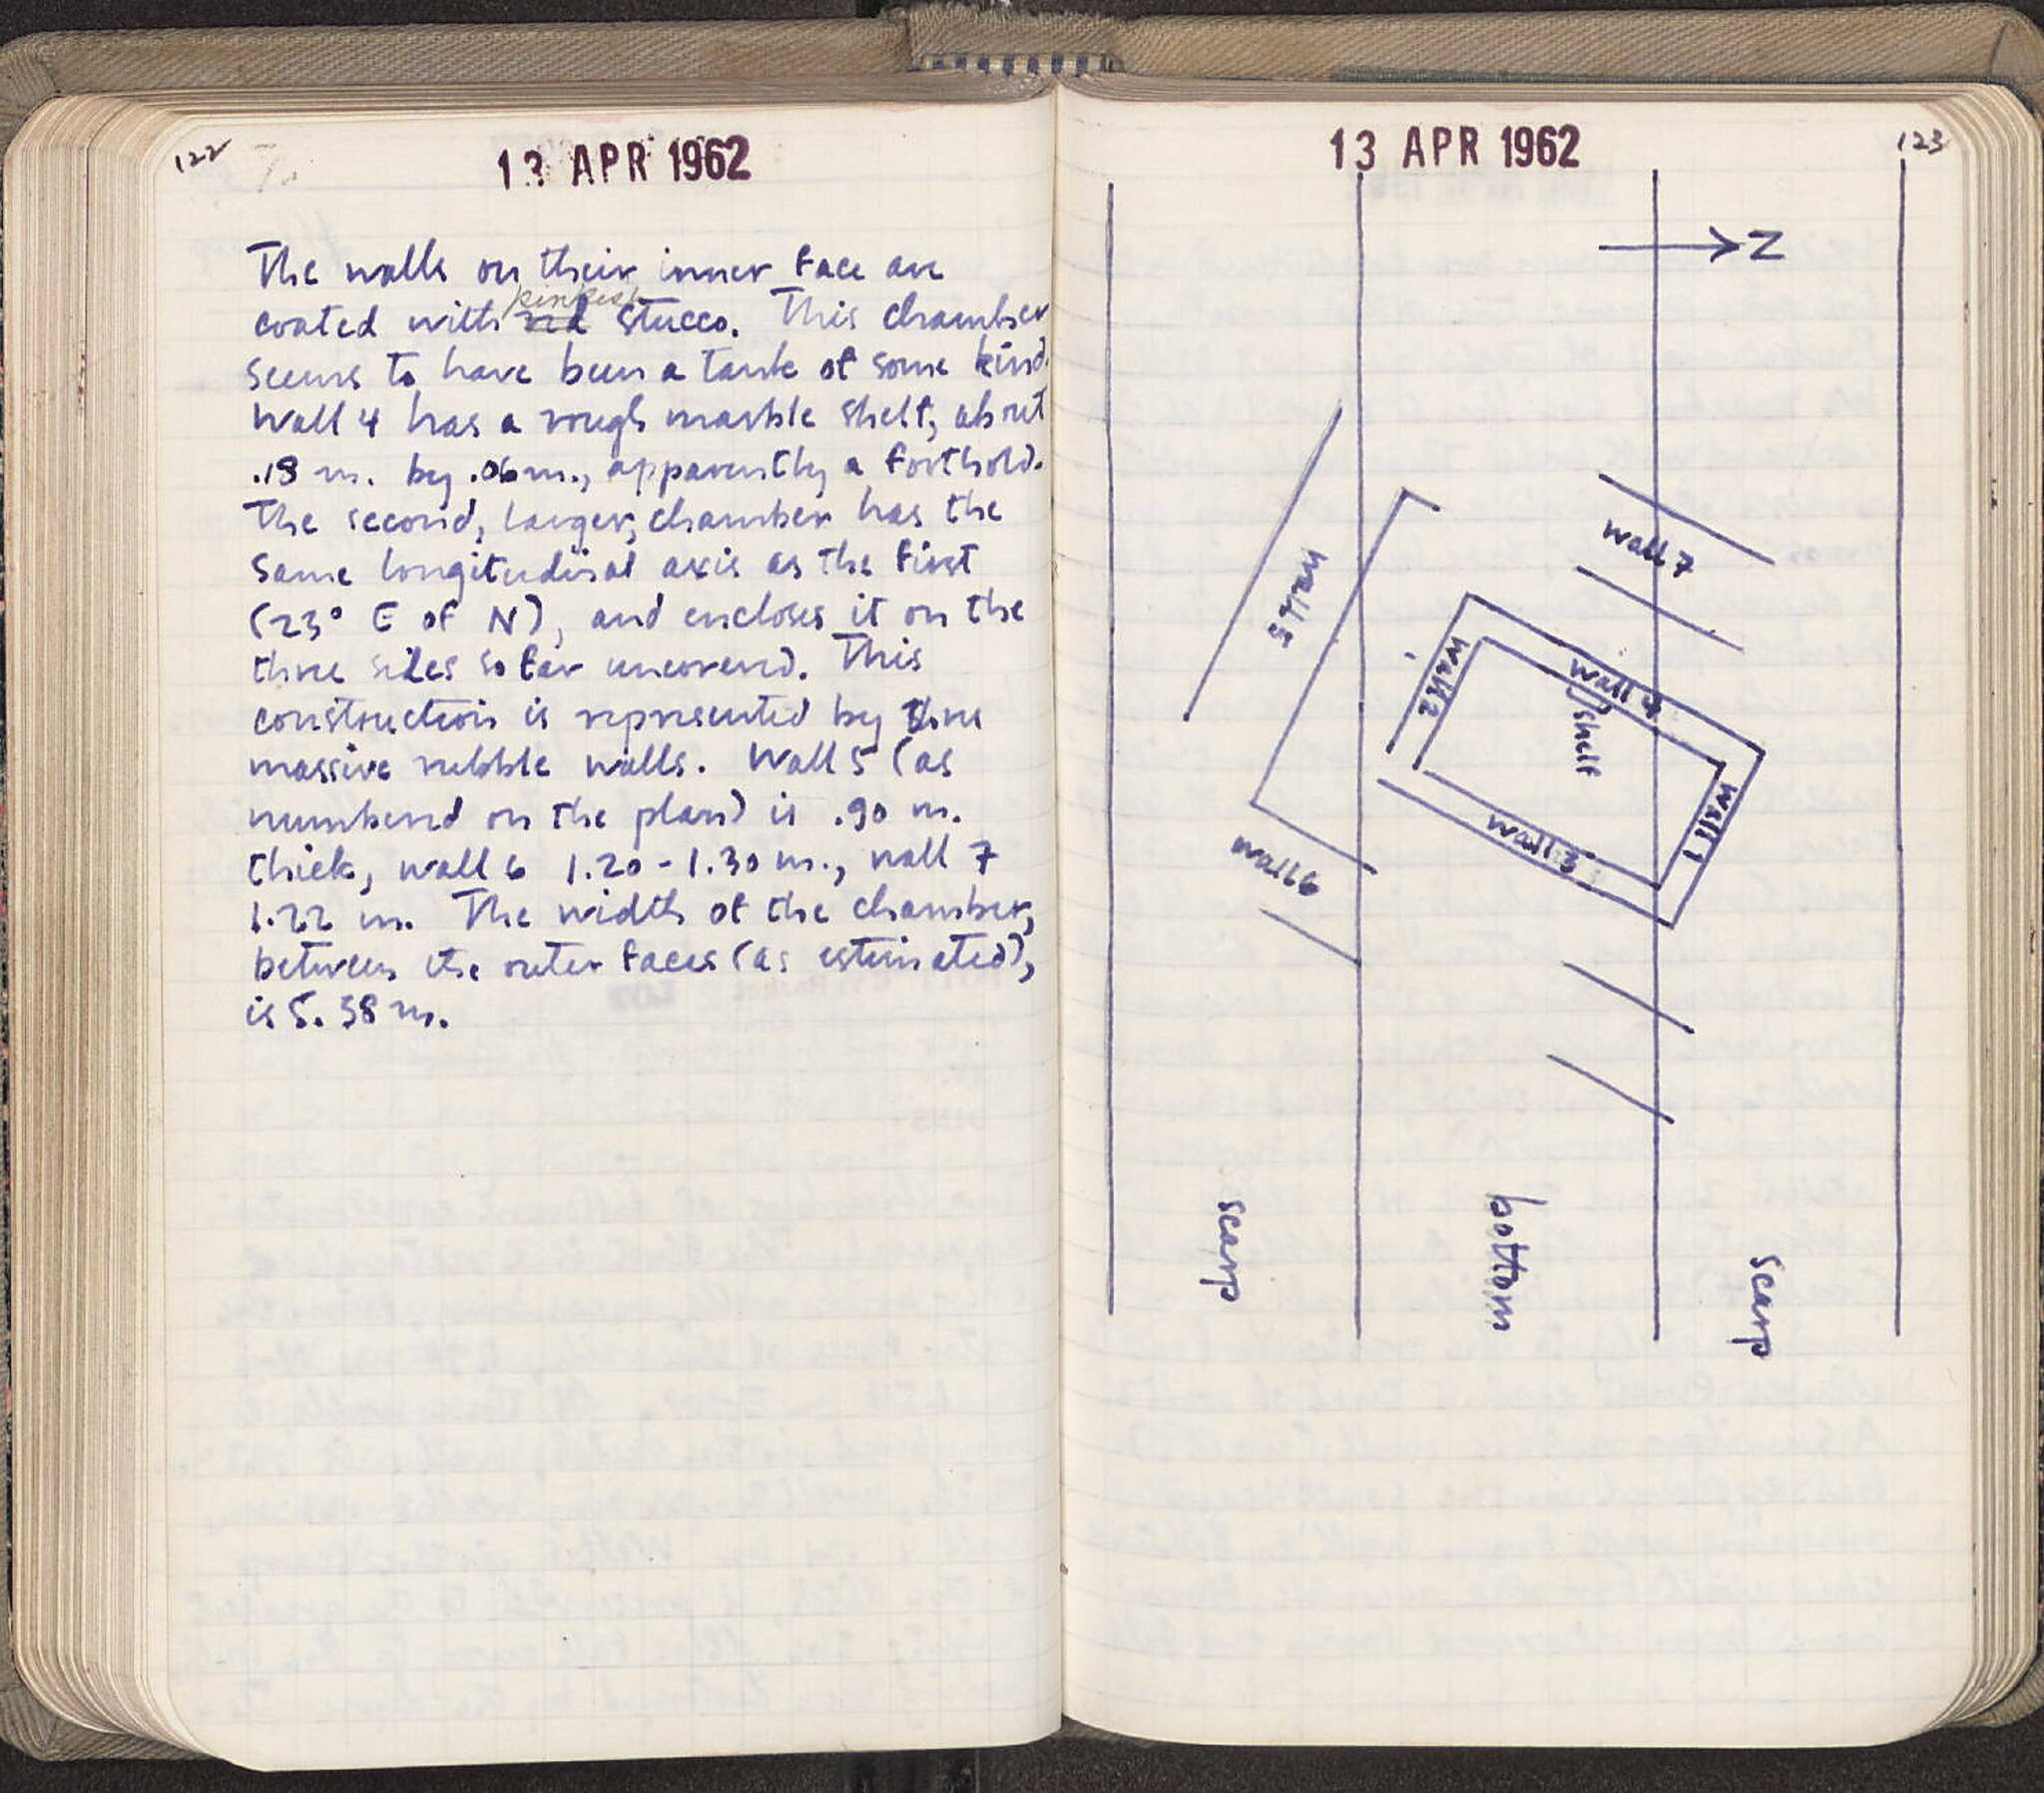 122
13 APR 1962
The walls on their inner face are
coated with red pinkish stucco. This chamber
seems to have been a tank of some kind.
Wall 4 has a rough marble shelf, about
.18 m. by .06 m., apparently a foothold.
The second, larger, chamber has the
same longitudinal axis as the first
(23° E of N), and encloses it on the
three sides so far uncovered. This
construction is represented by three
massive rubble walls. Wall 5 (as
numbered on the plan) is .90 m.
thick, wall 6 1.20 - 1.30 m., wall 7
1.22 m. The width of the chamber,
between the outer faces (as estimated),
is 5.38 m.
123
13 APR 1962
N
wall 7
wall 5
wall 2
wall 4
shelf
wall 1
wall 3
wall 6
scarp
bottom
scarp